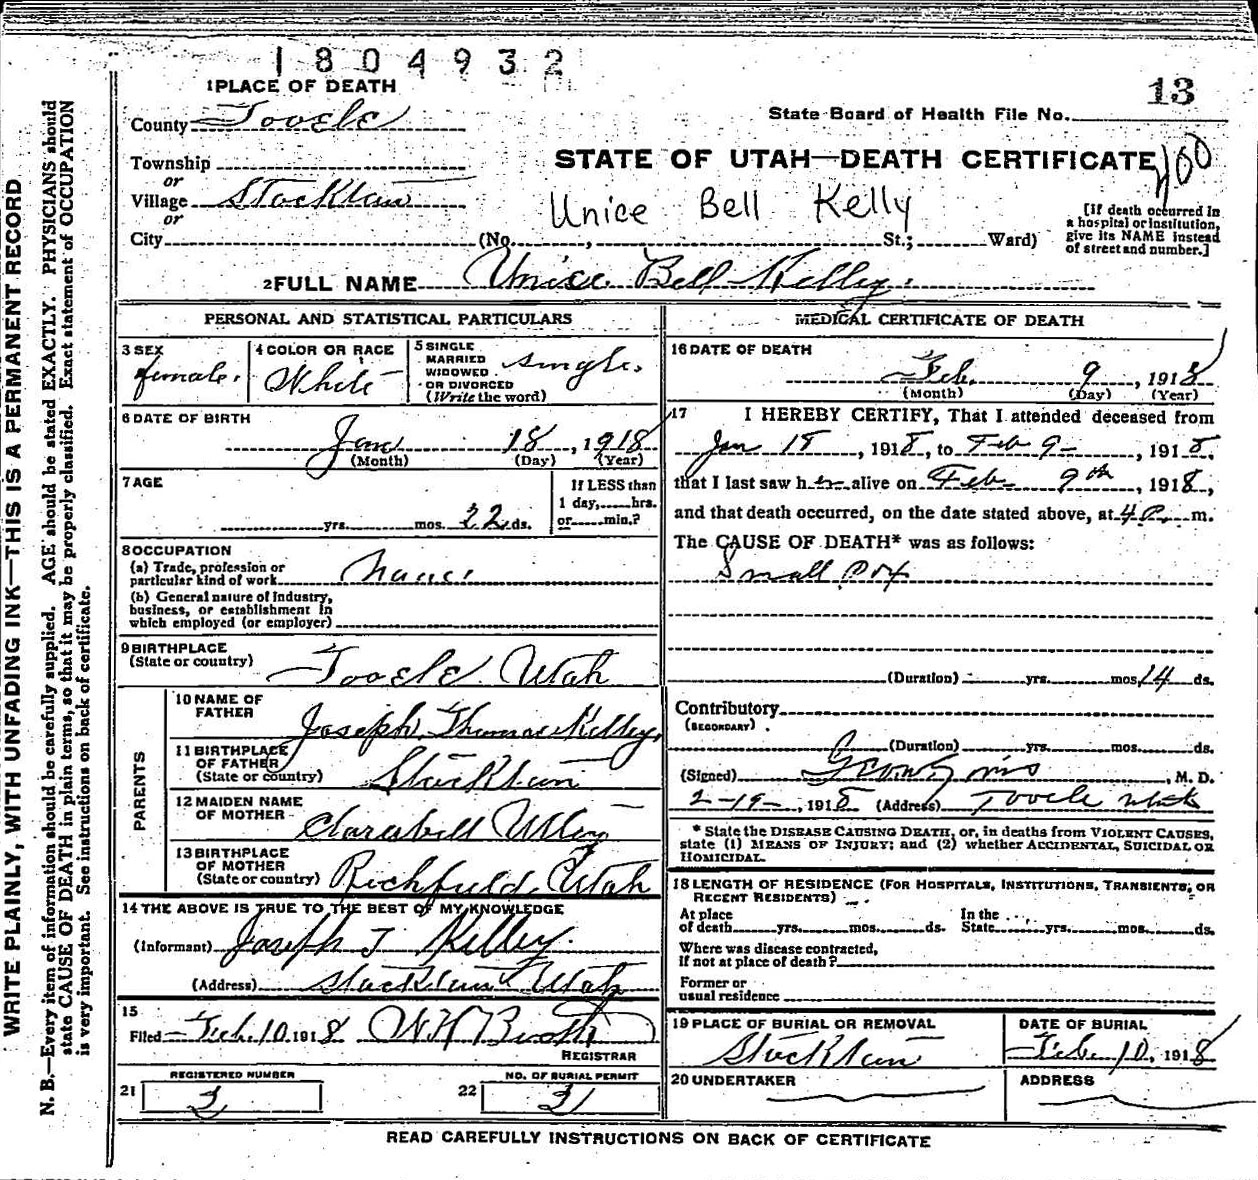 1804932
13
1 PLACE OF DEATH
State Board of Health File No.
County Tooele
STATE OF UTAH—DEATH CERTIFICATE
400
Township
or
Village Stockton
or
Unice Bell Kelly
City (No. , St.; Ward)
[If death occurred in
a hospital or institution,
give its NAME instead
of street and number.]
2 FULL NAME Unice Bell Kelley.
PERSONAL AND STATISTICAL PARTICULARS
3 SEX
female.
4 COLOR OR RACE
White
5 SINGLE
MARRIED
WIDOWED
OR DIVORCED
(Write the word)
single.
6 DATE OF BIRTH
Jan 18, 1918
(Month) (Day) (Year)
7 AGE
yrs. mos. 22 ds.
If LESS than
1 day, hrs.
or min.?
8 OCCUPATION
(a) Trade, profession or
particular kind of work
(b) General nature of industry,
business, or establishment in
which employed (or employer)
9 BIRTHPLACE
(State or country)
Tooele Utah
PARENTS
10 NAME OF
FATHER
Joseph Thomas Kelley,
11 BIRTHPLACE
OF FATHER
(State or country)
Stockton
12 MAIDEN NAME
OF MOTHER
Clarabell Utley
13 BIRTHPLACE
OF MOTHER
(State or country)
Richfield, Utah
14 THE ABOVE IS TRUE TO THE BEST OF MY KNOWLEDGE
(Informant) Joseph T Kelley.
(Address) Stockton Utah
15
Filed Feb. 10 1918 W H
REGISTRAR
REGISTERED NUMBER
21 3
NO. OF BURIAL PERMIT
22 31
MEDICAL CERTIFICATE OF DEATH
16 DATE OF DEATH
Feb. 9, 1918
(Month) (Day) (Year)
17 I HEREBY CERTIFY, That I attended deceased from
Jan 18, 1918, to Feb 9, 1918,
that I last saw her alive on Feb 9th, 1918,
and that death occurred, on the date stated above, at 4 P. m.
The CAUSE OF DEATH* was as follows:
Small pox
(Duration) yrs. mos. 14 ds.
Contributory
(SECONDARY)
(Duration) yrs. mos. ds.
(Signed) , M. D.
2-19-, 1918 (Address) Tooele Utah
* State the DISEASE CAUSING DEATH, or, in deaths from VIOLENT CAUSES,
state (1) MEANS OF INJURY; and (2) whether ACCIDENTAL, SUICIDAL OR
HOMICIDAL.
18 LENGTH OF RESIDENCE (FOR HOSPITALS, INSTITUTIONS, TRANSIENTS, OR
RECENT RESIDENTS)
At place
of death yrs. mos. ds.
In the
State yrs. mos. ds.
Where was disease contracted,
If not at place of death?
Former or
usual residence
19 PLACE OF BURIAL OR REMOVAL
Stockton
DATE OF BURIAL
Feb 10, 1918
20 UNDERTAKER
ADDRESS
READ CAREFULLY INSTRUCTIONS ON BACK OF CERTIFICATE
WRITE PLAINLY, WITH UNFADING INK—THIS IS A PERMANENT RECORD
N. B.—Every item of information should be carefully supplied. AGE should be stated EXACTLY. PHYSICIANS should
state CAUSE OF DEATH in plain terms, so that it may be properly classified. Exact statement of OCCUPATION
is very important. See instructions on back of certificate.